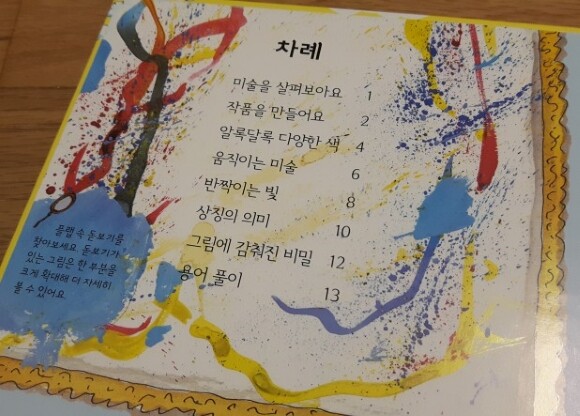 차례
미술을 살펴보아요 1
작품을 만들어요 2
알록달록 다양한 색 4
움직이는 미술 6
반짝이는 빛 8
상징의 의미 10
그림에 감춰진 비밀 12
용어 풀이 13
플랩 속 돋보기를
찾아보세요. 돋보기가
있는 그림은 한 부분을
크게 확대해 더 자세히
볼 수 있어요.